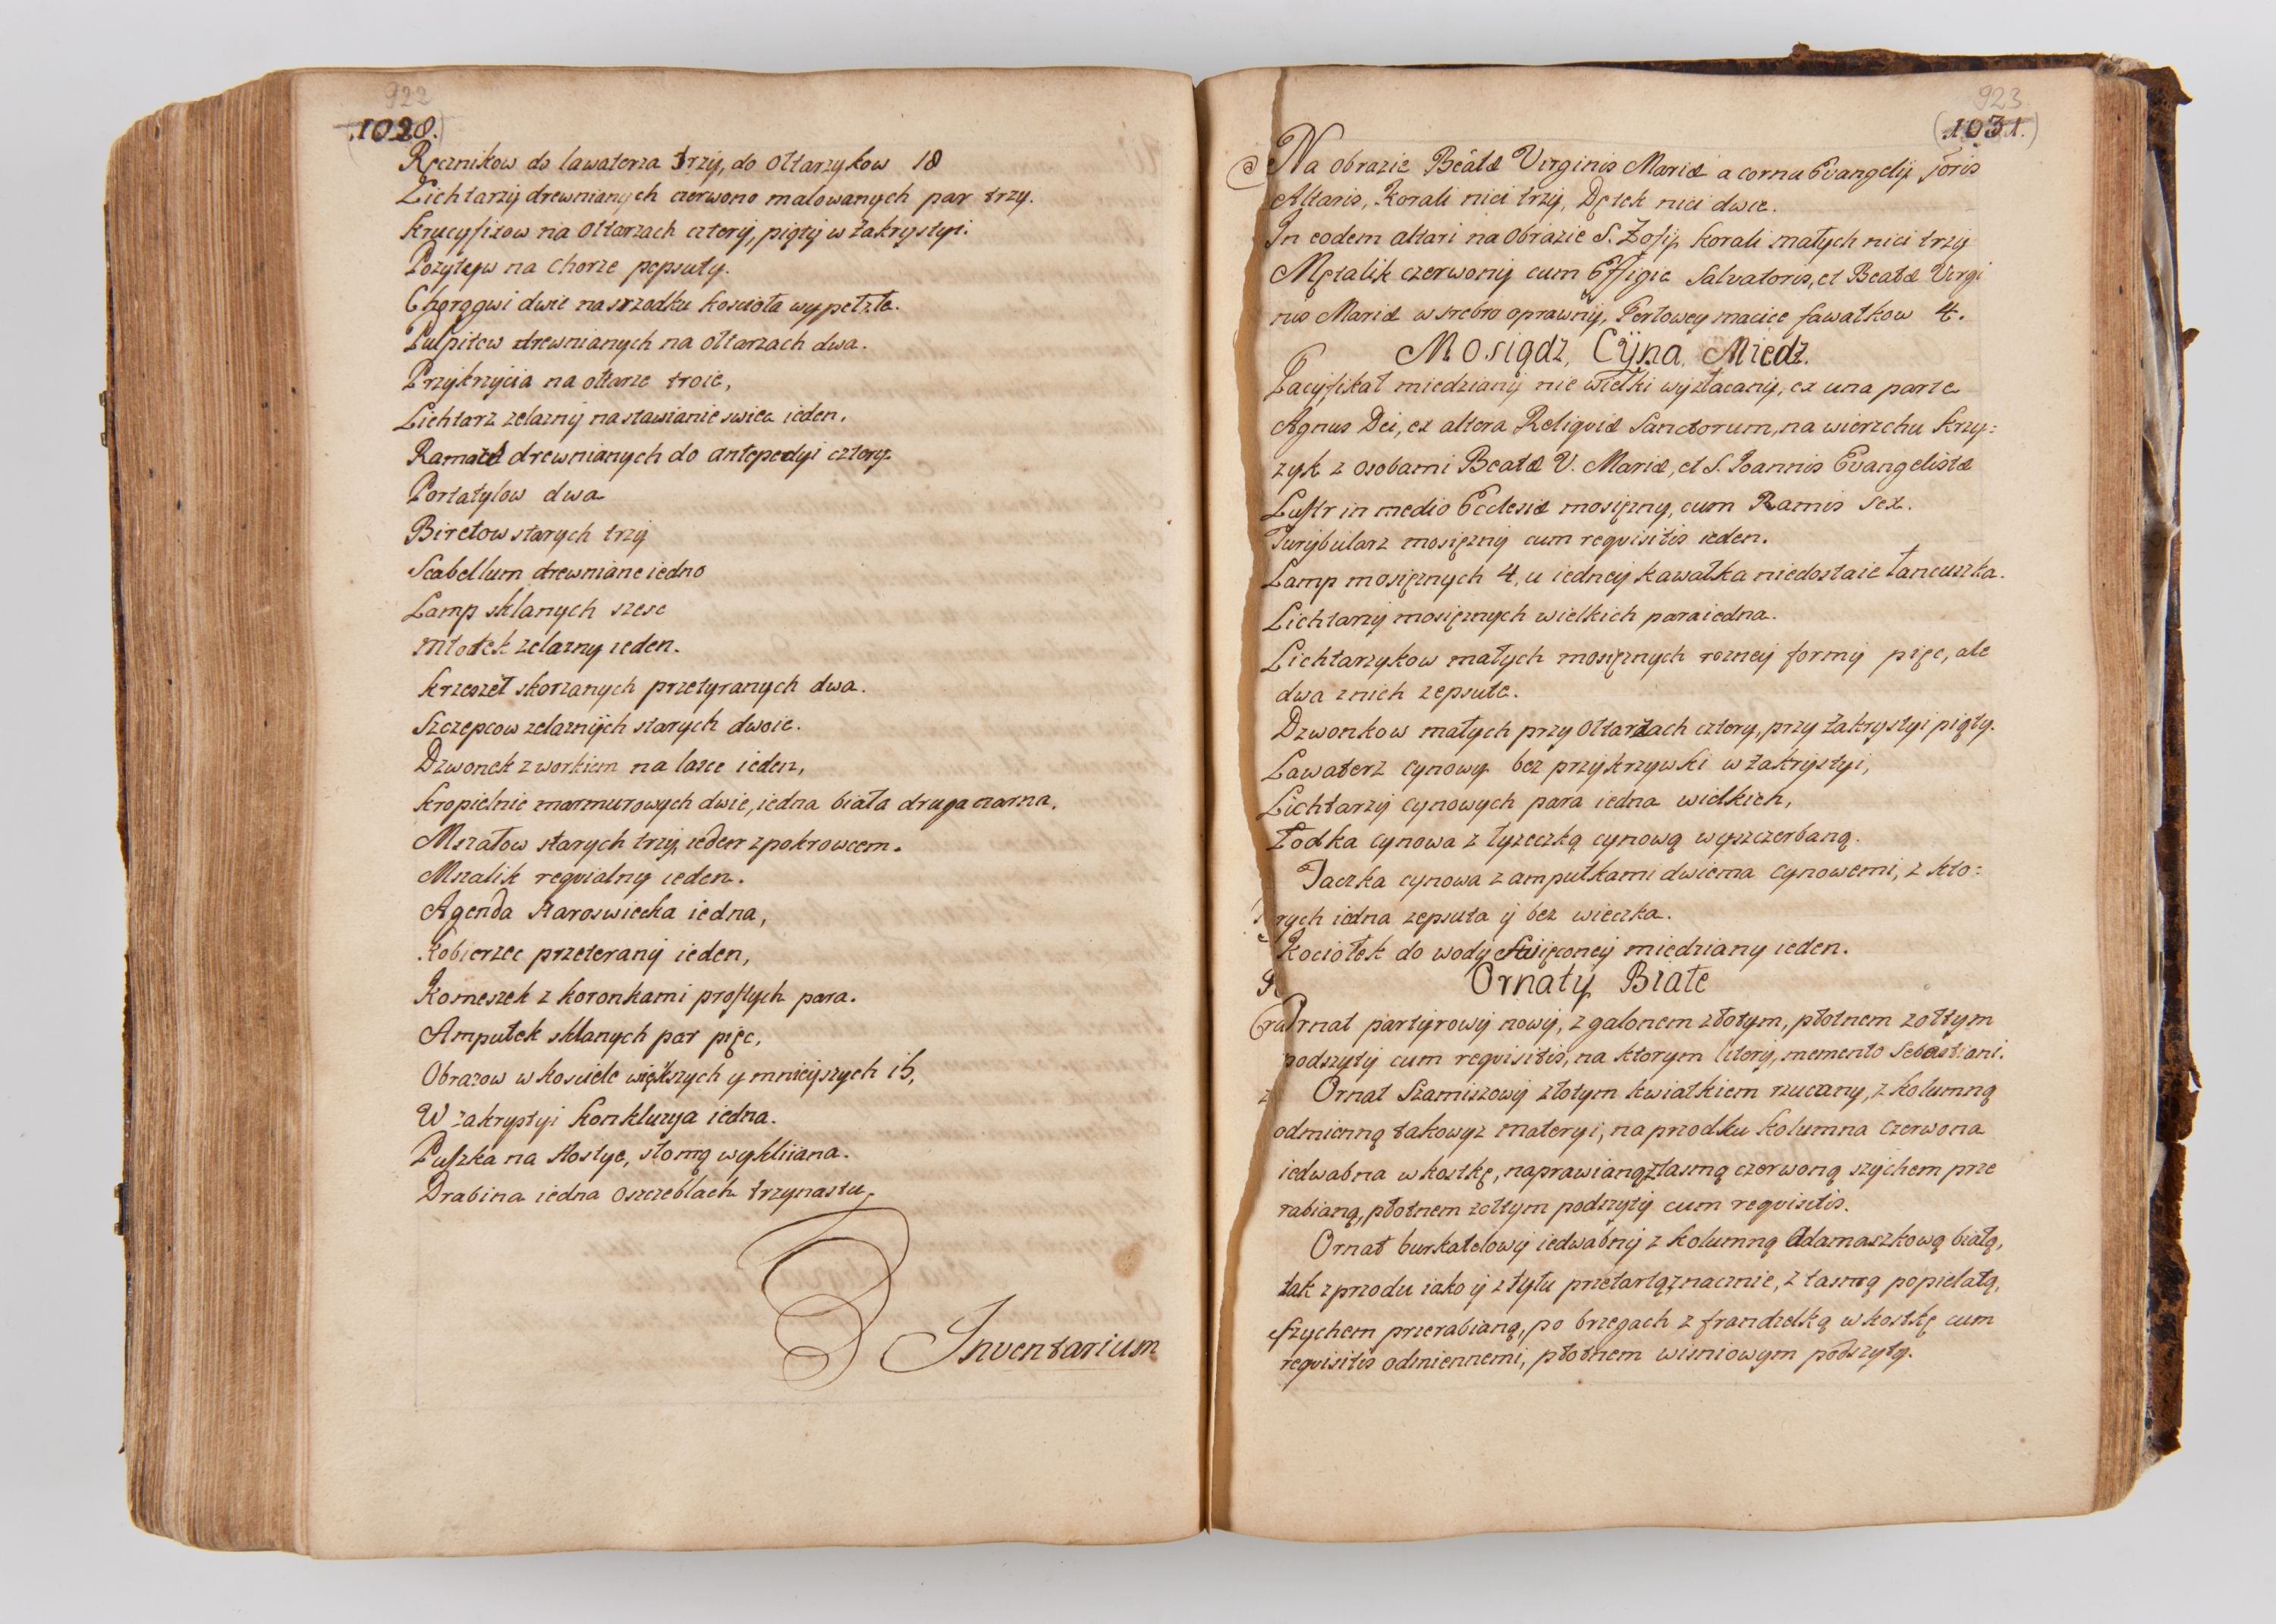 922
1028.
Ręcznikow do lawaterza trzy, do Ołtarzykow 18
Lichtarzy drewnianych czerwono malowanych par trzy.
Krucyfixow na Ołtarzach cztery, piąty w Zakrystyi.
Pozytyw na Chorze popsuty.
Chorągwi dwie na srzodku koscioła wypełzłe.
Pulpitow drewnianych na ołtarzach dwa.
Przykrycia na ołtarze troie,
Lichtarz zelazny na stawianie swiec ieden,
Ramek drewnianych do antepedyi cztery
Portatylow dwa
Biretow starych trzy
Scabellum drewniane iedno
Lamp sklanych szesc
Młotek zelazny ieden.
Krzeszeł skorzanych przetyranych dwa.
Szczepcow zelaznych starych dwoie.
Dzwonek z workiem na lasce ieden,
Kropielnie marmurowych dwie, iedna biała druga czarna,
Mszałow starych trzy, ieden z pokrowcem.
Mszalik reqvialny ieden.
Agenda staroswiecka iedna,
Kobierzec przeterany ieden,
Komeszek z koronkami prostych para.
Ampułek sklanych par pięc,
Obrazow w kosciele większych y mnieyszych 15,
W zakrystyi Konkluzya iedna.
Puszka na Hostye, słomą wykliiana.
Drabina iedna o szczeblach trzynastu,
Inventarium
923
1031.
Na obrazie Beatæ Virginis Mariæ a cornu Evangelij foris
Altaris, Korali nici trzy, Dętek nici dwie.
In eodem altari na Obrazie S. Zofij, korali małych nici trzy
Mętalik czerwony cum Effigie Salvatoris, et Beatæ Virgi
nis Mariæ w srebro oprawny, Perłowey macice kawałkow 4.
Mosiądz, Cyna, Miedz.
Pacyfikał miedziany nie wielki wyzłacany, ex una parte
Agnus Dei, ex altera Reliqviæ Sanctorum, na wierzchu krzy:
zyk z osobami Beatæ V. Mariæ, et S. Joannis Evangelistæ
Lustr in medio Ecclesiæ mosięzny, cum Ramis Sex.
Turybularz mosięzny cum reqvisitis ieden.
Lamp mosięznych 4, u iedney kawałka niedostaie łancuszka.
Lichtarzy mosięznych wielkich para iedna.
Lichtarzykow małych mosięznych rozney formy pięc, ale
dwa z nich zepsute.
Dzwonkow małych przy Ołtarzach cztery, przy Zakrystyi piąty.
Lawaterz cynowy bez przykrzywki w Zakrystyi,
Lichtarzy cynowych para iedna wielkich,
Łodka cynowa z łyzeczką cynową wyszczerbaną.
Taczka cynowa z ampułkami dwiema cynowemi, z kto:
rych iedna zepsuta y bez wieczka.
Kociołek do wody Swięconey miedziany ieden.
Ornaty Białe
Ornat partyrowy nowy, z galonem złotym, płotnem zołtym
podszyty cum reqvisitis, na ktorym litery, memento Sebastiani.
Ornat Szamiszowy złotym kwiatkiem rzucany, z kolumną
odmienną takowyz materyi, na przodku kolumna czerwona
iedwabna w kostkę, naprawianą, z tasmą czerwoną szychem prze
rabianą, płotnem zołtym podszyty cum reqvisitis.
Ornat burkatelowy iedwabny z kolumną Adamaszkową białą,
tak z przodu iako y z tyłu przetartą znacznie, z tasmą popielatą,
szychem przerabianą, po brzegach z frandzelką w kostkę cum
reqvisitis odmiennemi, płotnem wisniowym podszyty.